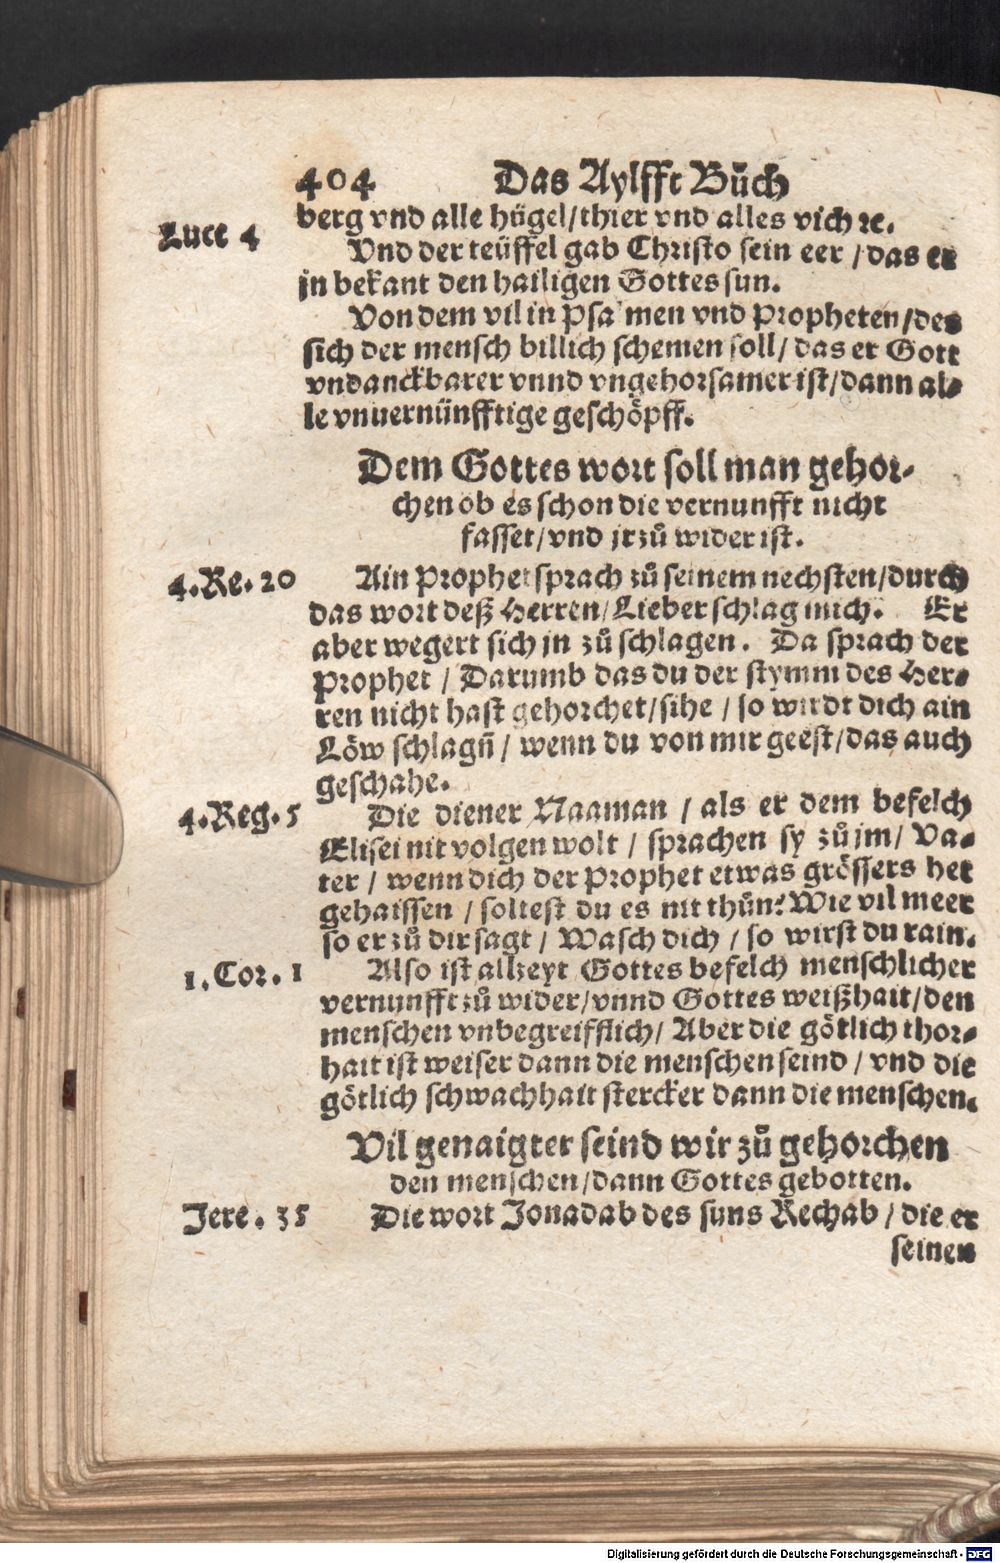 404 Das Aylfft Bůch
berg vnd alle hügel/thier vnd alles vich ꝛc.
Luce 4
Vnd der teüffel gab Christo sein eer / das er
jn bekant den hailigen Gottes sun.
Von dem vil in Psalmen vnd Propheten/des
sich der mensch billich schemen soll/ das er Gott
vndanckbarer vnnd vngehorsamer ist/dann al⸗
le vnuernünfftige geschöpff.
Dem Gottes wort soll man gehor⸗
chen ob es schon die vernunfft nicht
fasset/vnd jr zů wider ist.
4.Re.20 Ain Prophet sprach zů seinem nechsten/durch
das wort deß Herren/Lieber schlag mich. Er
aber wegert sich jn zů schlagen. Da sprach der
Prophet / Darumb das du der stymm des Her⸗
ren nicht hast gehorchet/sihe / so wirdt dich ain
Löw schlagñ / wenn du von mir geest/das auch
geschahe.
4.Reg.5 Die diener Naaman / als er dem befelch
Elisei nit volgen wolt / sprachen sy zů jm/ Va⸗
ter / wenn dich der Prophet etwas grössers het
gehaissen / soltest du es nit thůn? Wie vil meer
so er zů dir sagt / Wasch dich / so wirst du rain.
1.Cor.1 Also ist allzeyt Gottes befelch menschlicher
vernunfft zů wider/vnnd Gottes weißhait/den
menschen vnbegreifflich/ Aber die götlich thor⸗
hait ist weiser dann die menschen seind / vnd die
götlich schwachhait stercker dann die menschen.
Vil genaigter seind wir zů gehorchen
den menschen/dann Gottes gebotten.
Jere.35 Die wort Jonadab des suns Rechab / die er
seinen
Digitalisierung gefördert durch die Deutsche Forschungsgemeinschaft - DFG